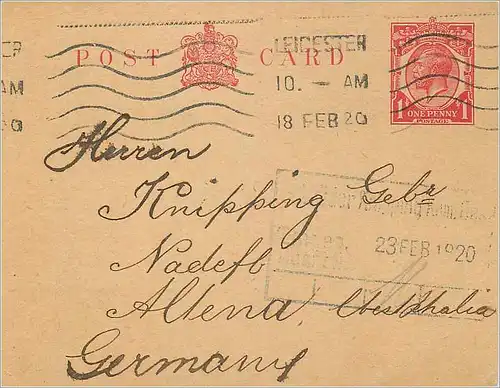 ER
POST CARD
LEICESTER
AM
10. - AM
20
18 FEB 20
1 ONE PENNY 1
POSTAGE
Herren
Knipping Gebr
Nadelfb
23 FEB 1920
Altena Westphalia
Germany